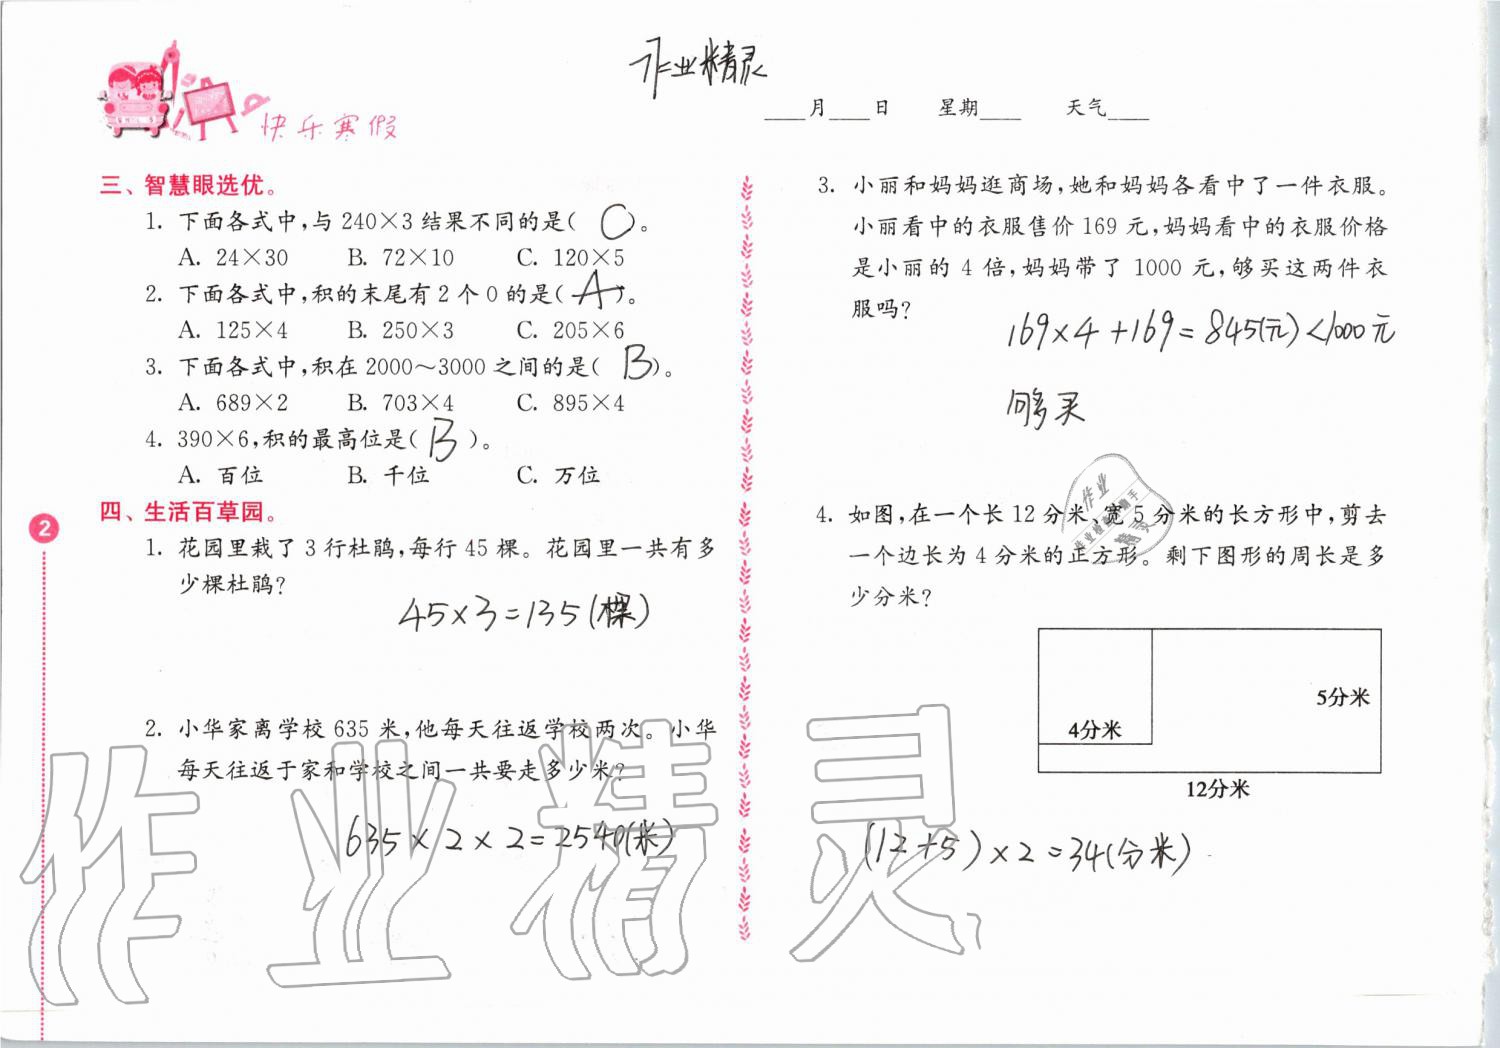 作业精灵
快乐寒假
____月____日 星期____ 天气____
三、智慧眼选优。
1. 下面各式中,与 240×3 结果不同的是( C )。
A. 24×30 B. 72×10 C. 120×5
2. 下面各式中,积的末尾有 2 个 0 的是( A )。
A. 125×4 B. 250×3 C. 205×6
3. 下面各式中,积在 2000～3000 之间的是( B )。
A. 689×2 B. 703×4 C. 895×4
4. 390×6,积的最高位是( B )。
A. 百位 B. 千位 C. 万位
四、生活百草园。
1. 花园里栽了 3 行杜鹃,每行 45 棵。花园里一共有多
少棵杜鹃?
45×3=135(棵)
2. 小华家离学校 635 米,他每天往返学校两次。小华
每天往返于家和学校之间一共要走多少米?
635×2×2=2540(米)
2
3. 小丽和妈妈逛商场,她和妈妈各看中了一件衣服。
小丽看中的衣服售价 169 元,妈妈看中的衣服价格
是小丽的 4 倍,妈妈带了 1000 元,够买这两件衣
服吗?
169×4+169=845(元)<1000元
够买
4. 如图,在一个长 12 分米,宽 5 分米的长方形中,剪去
一个边长为 4 分米的正方形。剩下图形的周长是多
少分米?
5分米
4分米
12分米
(12+5)×2=34(分米)
作业精灵